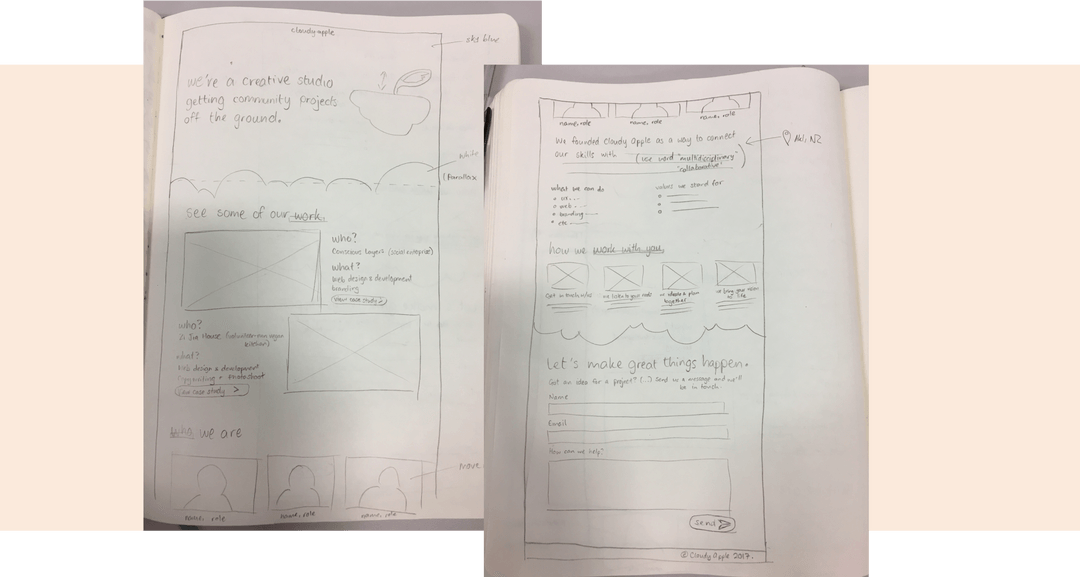 cloudy apple
sky blue
we're a creative studio
getting community projects
off the ground.
?
white
(Parallax
see some of our work.
who?
Conscious Layers (social enterprise)
what?
Web design & development
branding
view case study >
who?
Jin House,
kitchen)
what?
web design & development
case study >
who we are
move
name, role
name, role
name, role
name, role
name, role
name, role
We founded Cloudy apple as a way to connect
our skills with (use word "multidisciplinary"
"collaborative"
Akl, NZ
what we can do
UX
web
branding
etc
values we stand for
how we work with you.
Get in touch w/us
we listen to your needs
we create a plan
together
we bring your vision
to life
Let's make great things happen.
Got an idea for a project? (..) Send us a message and we'll
be in touch.
Name
Email
How can we help?
send
© Cloudy Apple 2017.